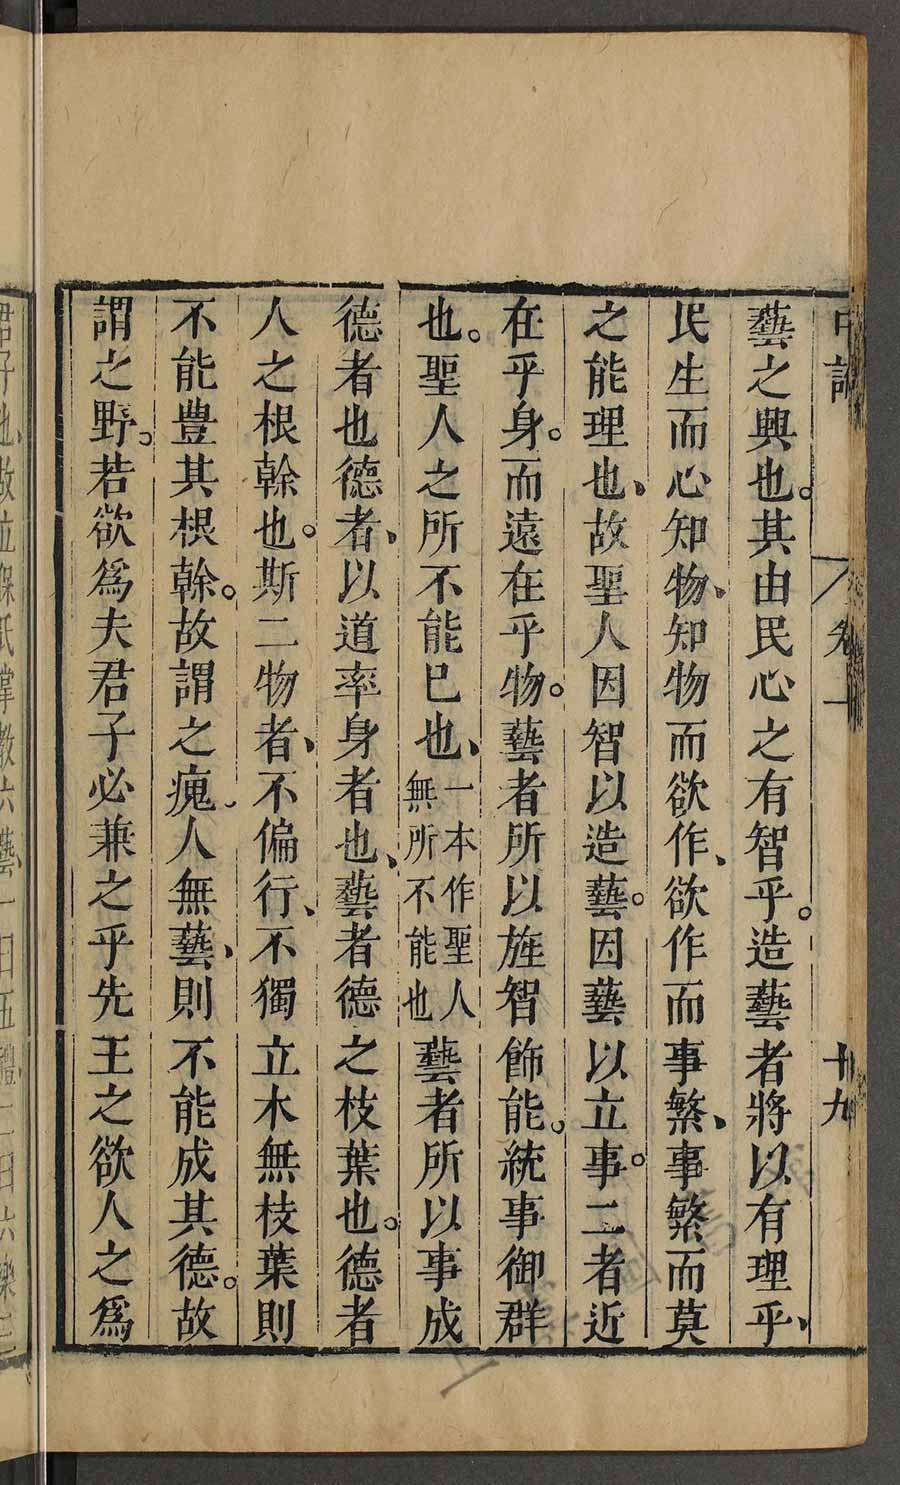 藝之興也。其由民心之有智乎。造藝者將以有理乎、
民生而心知物、知物而欲作、欲作而事繁、事繁而莫
之能理也、故聖人因智以造藝。因藝以立事。二者近
在乎身。而遠在乎物。藝者所以旌智飾能。統事御群
也。聖人之所不能已也、一本作聖人無所不能也藝者所以事成
德者也德者、以道率身者也、藝者德之枝葉也。德者
人之根榦也。斯二物者、不偏行、不獨立木無枝葉則
不能豊其根榦。故謂之瘣、人無藝、則不能成其德。故
謂之野。若欲爲夫君子必兼之乎先王之欲人之爲
卷一
十九